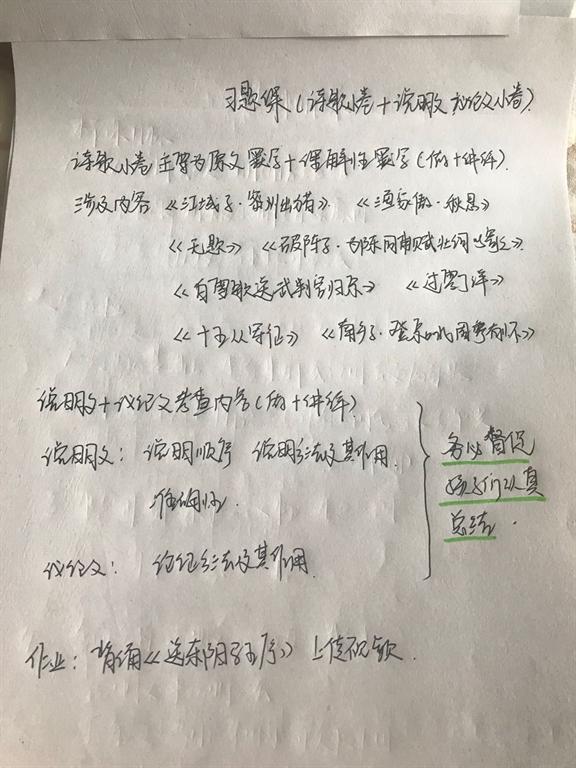 习题课(诗歌小卷+说明文 议论文小卷)
诗歌小卷 主要为原文默写+理解性默写(做+讲解)
涉及内容 《江城子·密州出猎》 《渔家傲·秋思》
《无题》 《破阵子·为陈同甫赋壮词以寄之》
《白雪歌送武判官归京》 《过零丁洋》
《十五从军征》 《南乡子·登京口北固亭有怀》
说明文+议论文考查内容(做+讲解)
说明文: 说明顺序 说明方法及其作用
准确性
议论文: 论证方法及其作用
务必督促
孩子们认真
总结.
作业: 背诵《送东阳马生序》上传视频.